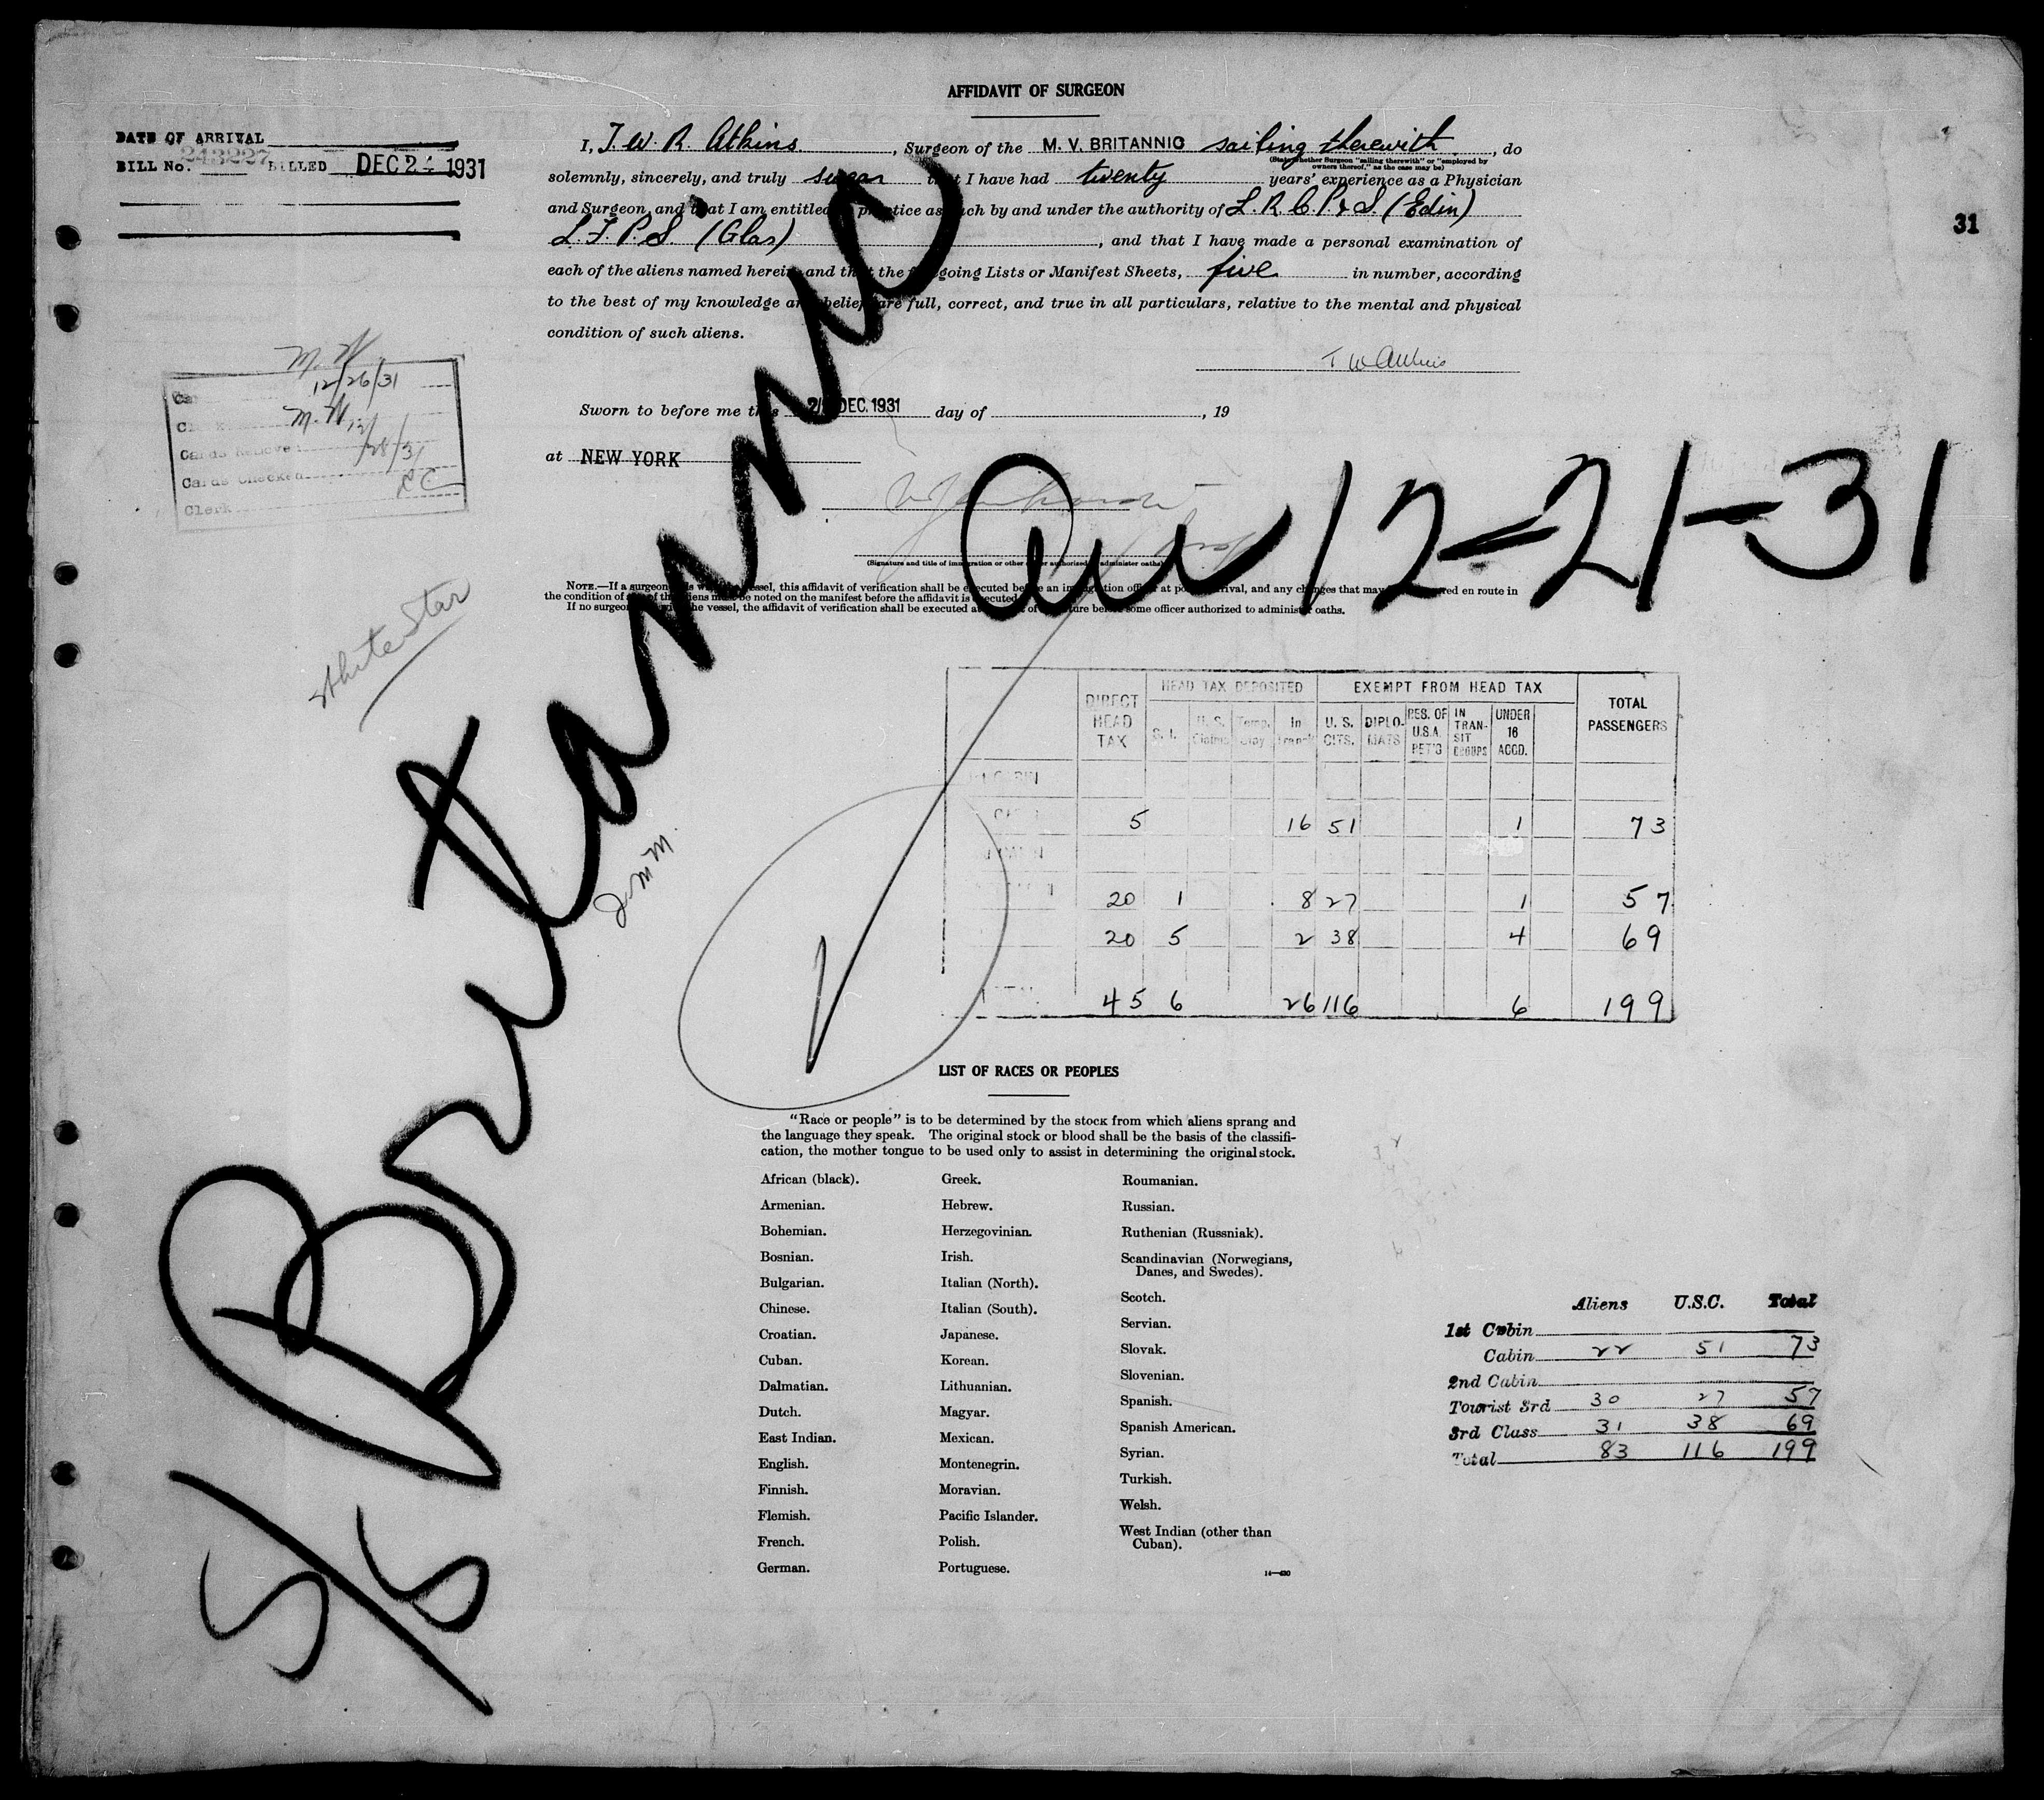 AFFIDAVIT OF SURGEON
DATE OF ARRIVAL
BILL No. 243227 BILLED DEC 24 1931
31
I, T. W. R. Atkins, Surgeon of the M. V. BRITANNIC sailing therewith, do
(State whether Surgeon "sailing therewith" or "employed by
owners thereof," as the case may be)
solemnly, sincerely, and truly swear that I have had twenty years' experience as a Physician
and Surgeon, and that I am entitled to practice as such by and under the authority of L. R. C. P. & S. (Edin)
L. F. P. S. (Glas), and that I have made a personal examination of
each of the aliens named herein and that the foregoing Lists or Manifest Sheets, five in number, according
to the best of my knowledge and belief, are full, correct, and true in all particulars, relative to the mental and physical
condition of such aliens.
T W Atkins
Sworn to before me this DEC. 1931 day of , 19
at NEW YORK
(Signature and title of immigration or other officer authorized to administer oaths)
NOTE.—If a surgeon sails with the vessel, this affidavit of verification shall be executed before an immigration officer at port of arrival, and any changes that may have occurred en route in
the condition of any of the aliens must be noted on the manifest before the affidavit is executed.
If no surgeon sails with the vessel, the affidavit of verification shall be executed at port of departure before some officer authorized to administer oaths.
12/26/31
M. H. 12/28/31
Cards Removed
Cards Checked
Clerk
White Star
S/S Britannic
Arr 12-21-31
J M M.
DIRECT HEAD TAX
HEAD TAX DEPOSITED
S. I. U. S. Claims Temp. Stay In Transit
EXEMPT FROM HEAD TAX
U. S. CITS. DIPLOMATS RES. OF U.S.A. RET'G IN TRANSIT GROUPS UNDER 16 ACCD.
TOTAL PASSENGERS
5 16 51 1 73
20 1 8 27 1 57
20 5 2 38 4 69
45 6 26 116 6 199
LIST OF RACES OR PEOPLES
"Race or people" is to be determined by the stock from which aliens sprang and
the language they speak. The original stock or blood shall be the basis of the classifi-
cation, the mother tongue to be used only to assist in determining the original stock.
African (black).
Armenian.
Bohemian.
Bosnian.
Bulgarian.
Chinese.
Croatian.
Cuban.
Dalmatian.
Dutch.
East Indian.
English.
Finnish.
Flemish.
French.
German.
Greek.
Hebrew.
Herzegovinian.
Irish.
Italian (North).
Italian (South).
Japanese.
Korean.
Lithuanian.
Magyar.
Mexican.
Montenegrin.
Moravian.
Pacific Islander.
Polish.
Portuguese.
Roumanian.
Russian.
Ruthenian (Russniak).
Scandinavian (Norwegians,
Danes, and Swedes).
Scotch.
Servian.
Slovak.
Slovenian.
Spanish.
Spanish American.
Syrian.
Turkish.
Welsh.
West Indian (other than
Cuban).
Aliens U.S.C. Total
1st Cabin
Cabin 22 51 73
2nd Cabin
Tourist 3rd 30 27 57
3rd Class 31 38 69
Total 83 116 199